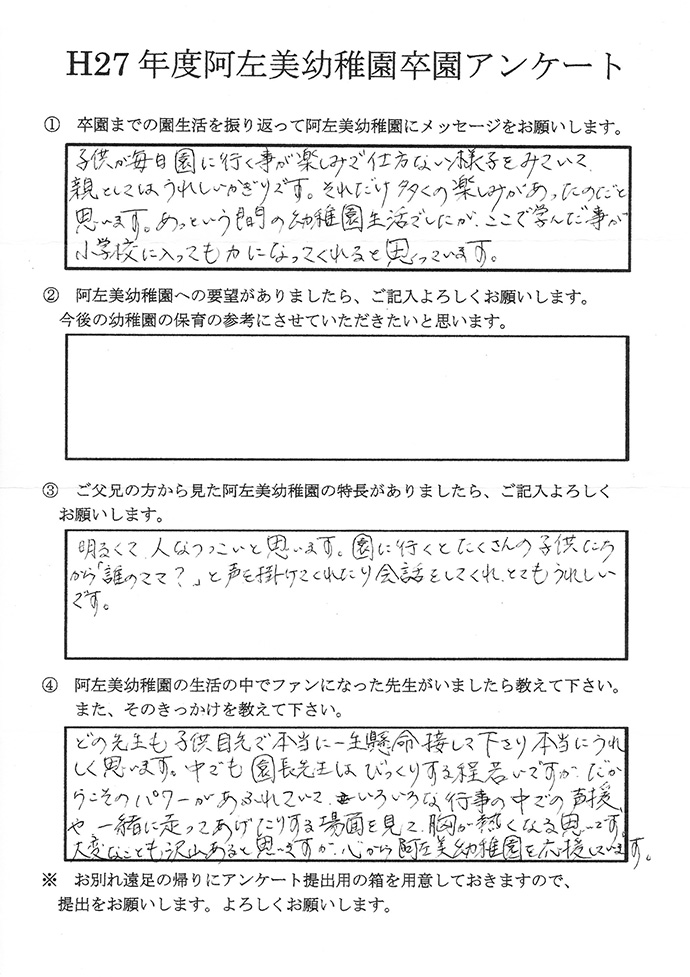 H27 年度阿左美幼稚園卒園アンケート
① 卒園までの園生活を振り返って阿左美幼稚園にメッセージをお願いします。
子供が毎日園に行く事が楽しみで仕方ない様子をみていて、
親としてはうれしいかぎりです。それだけ多くの楽しみがあったのだと
思います。あっという間の幼稚園生活でしたが、ここで学んだ事が
小学校に入っても力になってくれると思っています。
② 阿左美幼稚園への要望がありましたら、ご記入よろしくお願いします。
今後の幼稚園の保育の参考にさせていただきたいと思います。
③ ご父兄の方から見た阿左美幼稚園の特長がありましたら、ご記入よろしく
お願いします。
明るくて、人なつっこいと思います。園に行くとたくさんの子供たち
から「誰のママ？」と声を掛けてくれたり会話をしてくれ、とてもうれしい
です。
④ 阿左美幼稚園の生活の中でファンになった先生がいましたら教えて下さい。
また、そのきっかけを教えて下さい。
どの先生も子供目先で本当に一生懸命接して下さり本当にうれ
しく思います。中でも園長先生はびっくりする程若いですが、だか
らこそのパワーがあふれていて、いろいろな行事の中での声援
や一緒に走ってあげたりする場面を見て、胸が熱くなる思いです。
大変なことも沢山あると思いますが、心から阿左美幼稚園を応援しています。
※ お別れ遠足の帰りにアンケート提出用の箱を用意しておきますので、
提出をお願いします。よろしくお願いします。